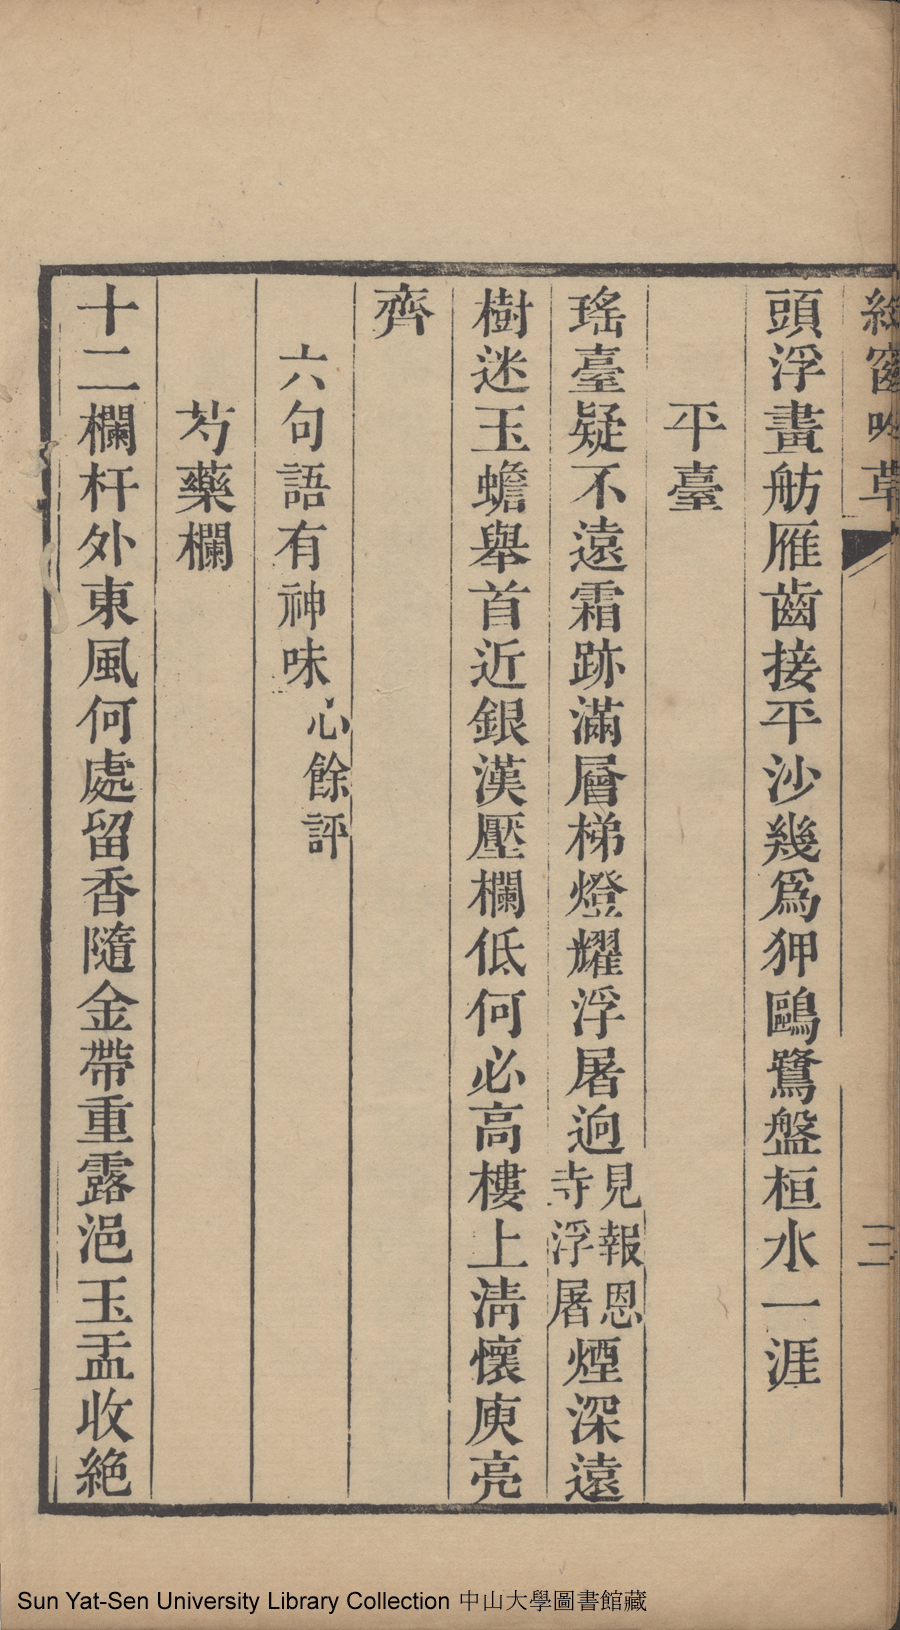 窗吟草
三
頭浮畫舫雁齒接平沙幾爲狎鷗鷺盤桓水一涯
平臺
瑤臺疑不遠霜跡滿層梯燈耀浮屠逈見報恩寺浮屠煙深遠
樹迷玉蟾舉首近銀漢壓欄低何必高樓上淸懷庾亮
齊
六句語有神味心餘評
芍藥欄
十二欄杆外東風何處留香隨金帶重露浥玉盂收絶
Sun Yat-Sen University Library Collection 中山大學圖書館藏